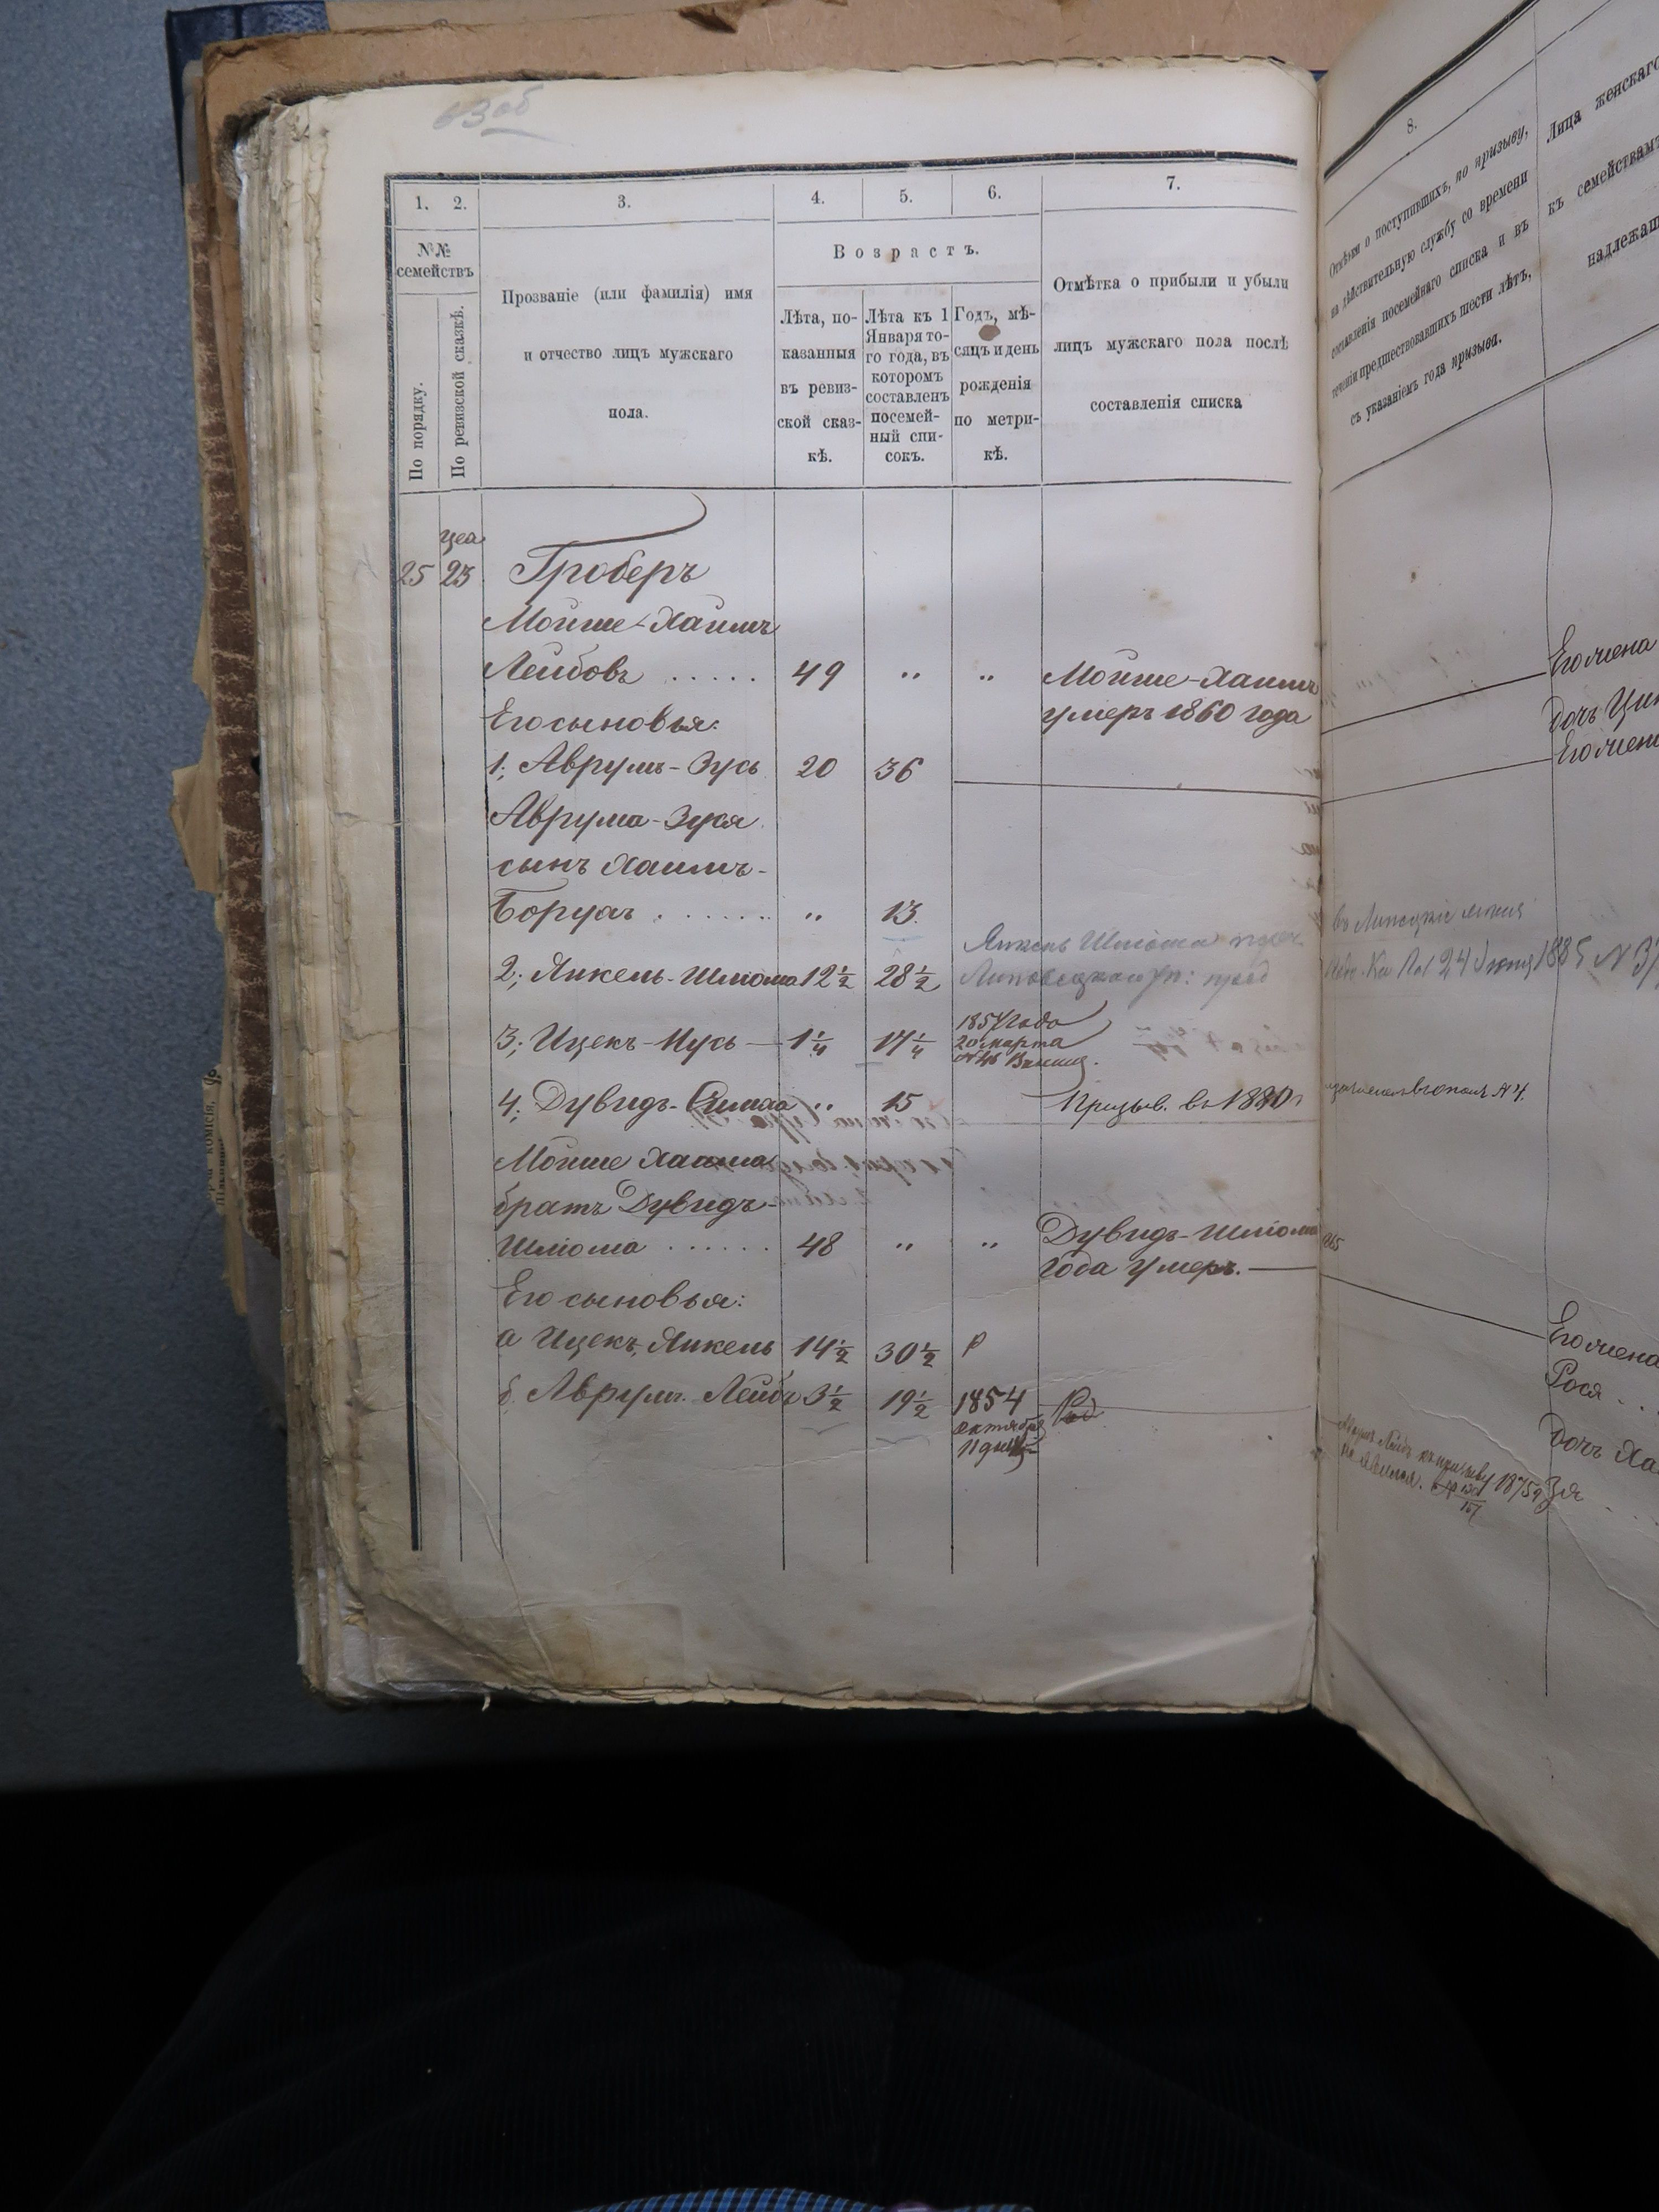 1. 2. 3. 4. 5. 6. 7.
№№ семействъ
По порядку.
По ревизской сказкѣ.
Прозваніе (или фамилія) имя
и отчество лицъ мужскаго
пола.
Возрастъ.
Лѣта, по-
казанныя
въ ревиз-
ской сказ-
кѣ.
Лѣта къ 1
Января то-
го года, въ
которомъ
составленъ
посемей-
ный спи-
сокъ.
Годъ, мѣ-
сяцъ и день
рожденія
по метри-
кѣ.
Отмѣтка о прибыли и убыли
лицъ мужскаго пола послѣ
составленія списка
25 23 Гроберъ
Мойше-Хаимъ
Лейбовъ 49 " " Мойше-Хаимъ
умеръ 1860 года
Его сыновья:
1; Аврумъ-Зусь 20 36
Аврума-Зуся
сынъ Хаимъ-
Борухъ " 13
2; Янкель-Шліома 12½ 28½
3; Ицекъ-Нусь 1¼ 17¼ 1857 года
20 марта
4; Дувидъ- " 15 Призыв. въ 1880 г
Мойше Хаима
братъ Дувидъ-
Шліома 48 " " Дувидъ-Шліома
года умеръ.
Его сыновья:
а Ицекъ, Янкель 14½ 30½ Р
б. Аврумъ Лейбъ 3½ 19½ 1854
октября
11 дня
8.
Отмѣтки о поступившихъ, по призыву,
на дѣйствительную службу со времени
составленія посемейнаго списка и въ
теченіи предшествовавшихъ шести лѣтъ,
съ указаніемъ года призыва.
Лица женскаго
къ семействамъ
надлежащ
Его жена
дочь
Его жена
24 Іюня 1885 №
Его жена
Рося
дочь
къ призыву 1875 г
не явился.